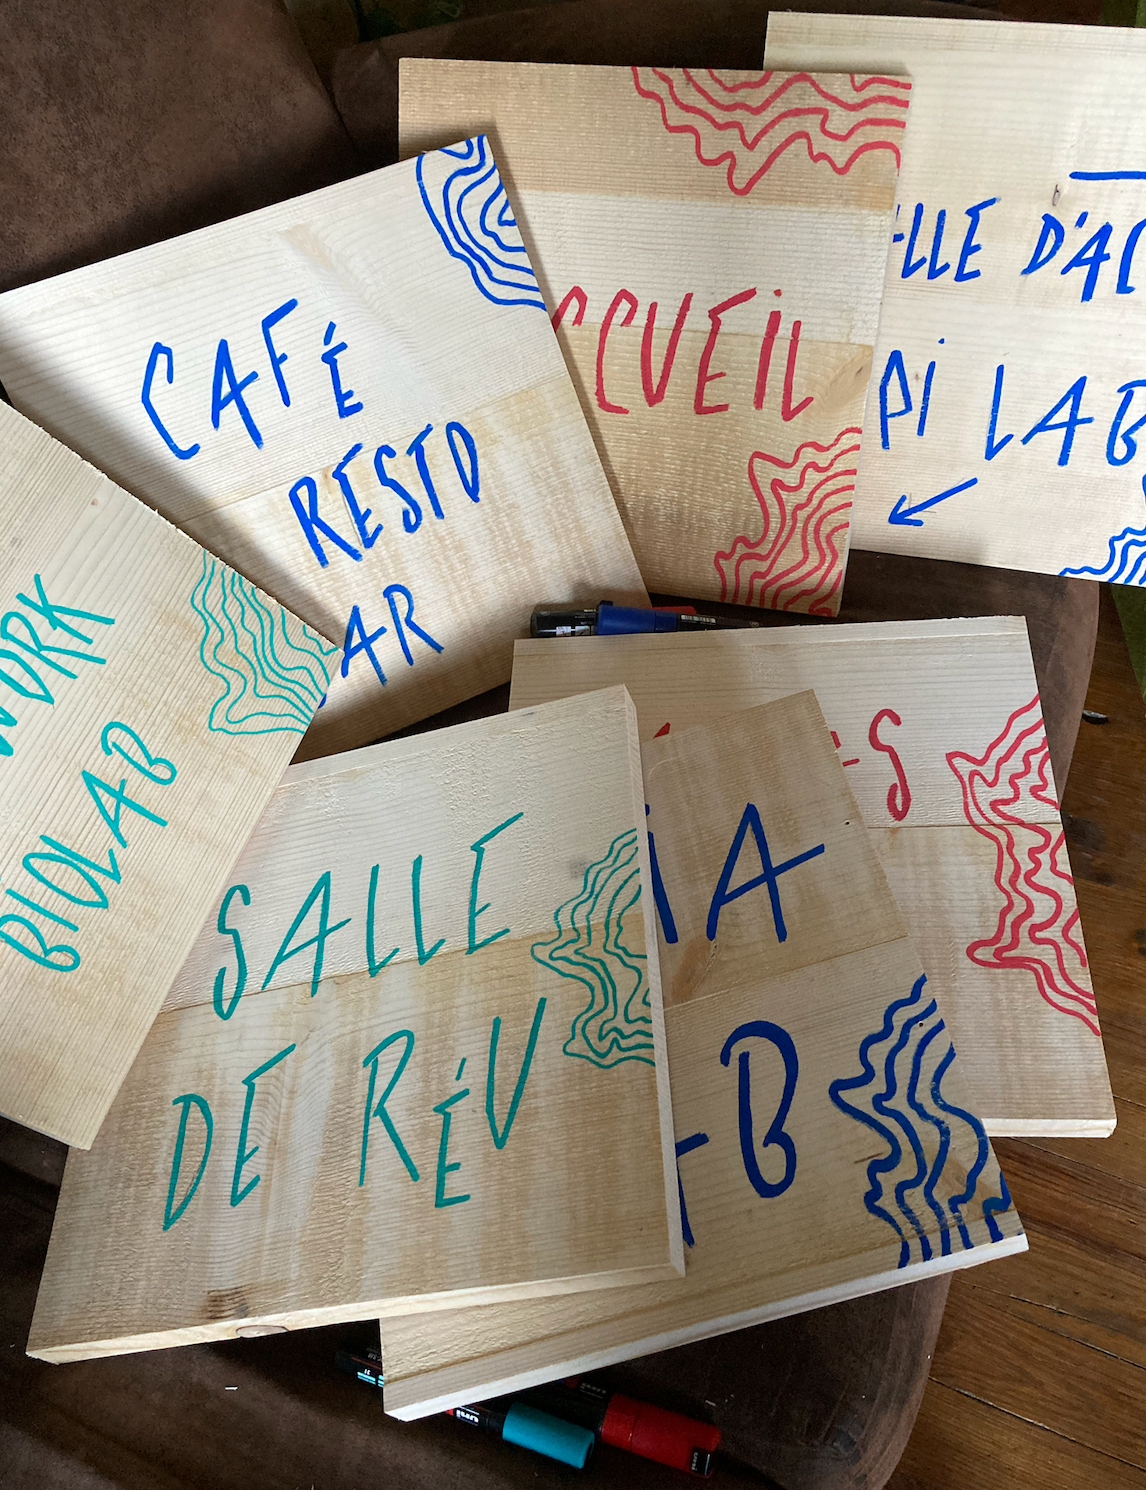 CAFÉ
RESTO
CCUEIL
LLE D'AC
PI LAB
WORK
BIOLAB
SALLE
DE RÉU
IA
B
S